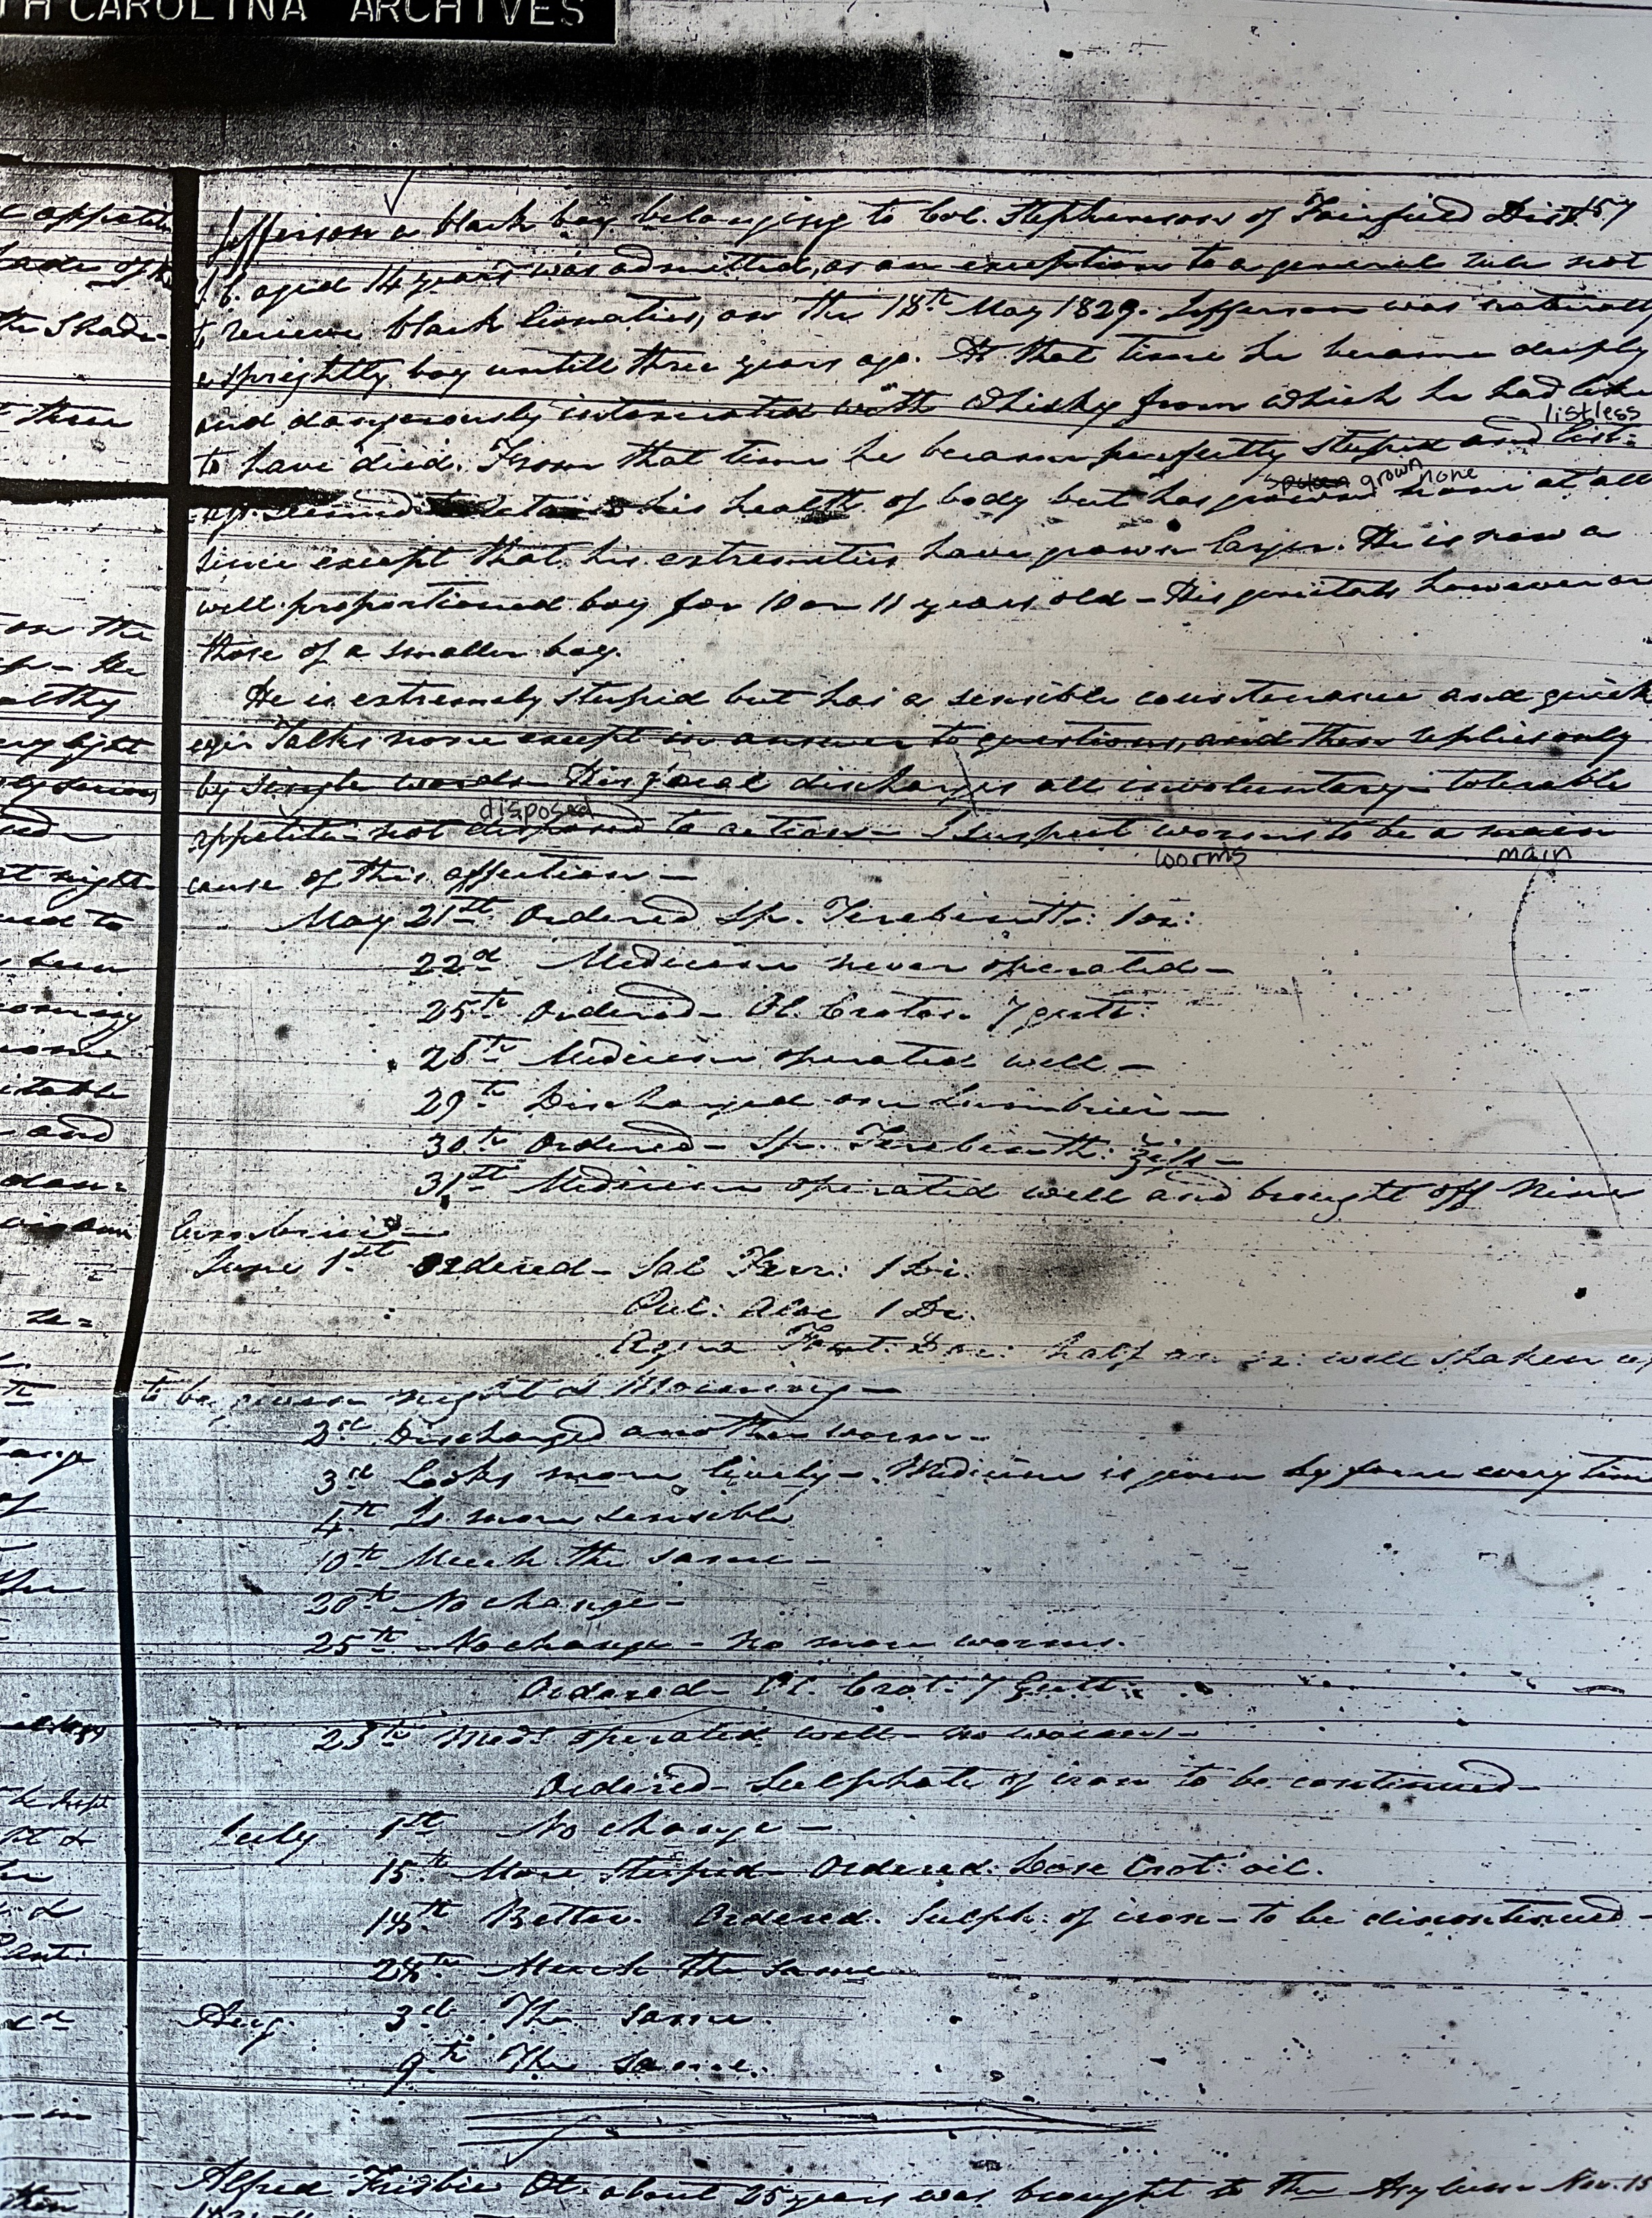 TH CAROLINA ARCHIVES
Jefferson a black boy belonging to Col. Stephenson of Fairfield Dist.
S. C. aged 14 years was admitted, as an exception to a general rule not
to receive black lunatics, on the 18th May 1829. Jefferson was naturally
a sprightly boy untill three years ago. At that time he became deeply
and dangerously intoxicated with whisky from which he had like
listless
to have died. From that time he became perfectly stupid and list-
spoken grown none
seemed to retain his health of body but has growed none at all
since except that his extremities have grown larger. He is now a
well proportioned boy for 10 or 11 years old - His genitals however are
those of a smaller boy.
He is extremely stupid but has a sensible countenance and quick
eye. Talks none except in answer to questions, and then replies only
by single words. His faecal discharges all involuntary - tolerable
disposed
appetite - not disposed to action - I suspect worms to be a main
worms main
cause of this affection -
May 21st Ordered Sp. Terebinth: 1 oz:
22d Medicine never operated -
25th Ordered - Ol. Croton 7 gutt:
26th Medicine operated well -
29th Discharged one Lumbrici -
30th Ordered - Sp. Terebinth:
31st Medicine operated well and brought off nine
Lumbrici -
June 1st Ordered - Sal Ferr: 1 Dr.
Pul: Aloe 1 Dr.
Aqua Font: half an oz: well shaken up
to be given night & Morning -
2d Discharged another worm -
3d Looks more lively - Medicine is given by force every time
4th Is more sensible
10th Much the same -
20th No change -
25th No change - no more worms.
Ordered - Ol. Crot: 7 Gutt:
25th Med operated well - no worms -
Ordered - Sulphate of iron to be continued -
July 1st No change -
15th More Stupid - Ordered: Dose Crot: oil.
18th Better. Ordered. Sulph: of iron - to be discontinued -
24th Much the same
Aug. 3d The same.
9th The same.
Alfred Frisbie Ot. about 25 years was brought to the Asylum Nov. 13